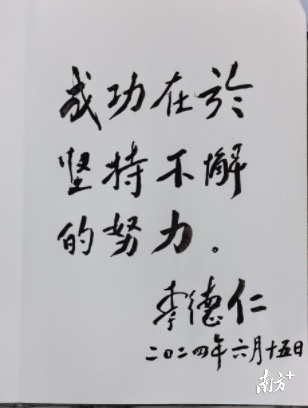 成功在於
坚持不懈
的努力。
李德仁
二〇二四年六月十五日
南方+